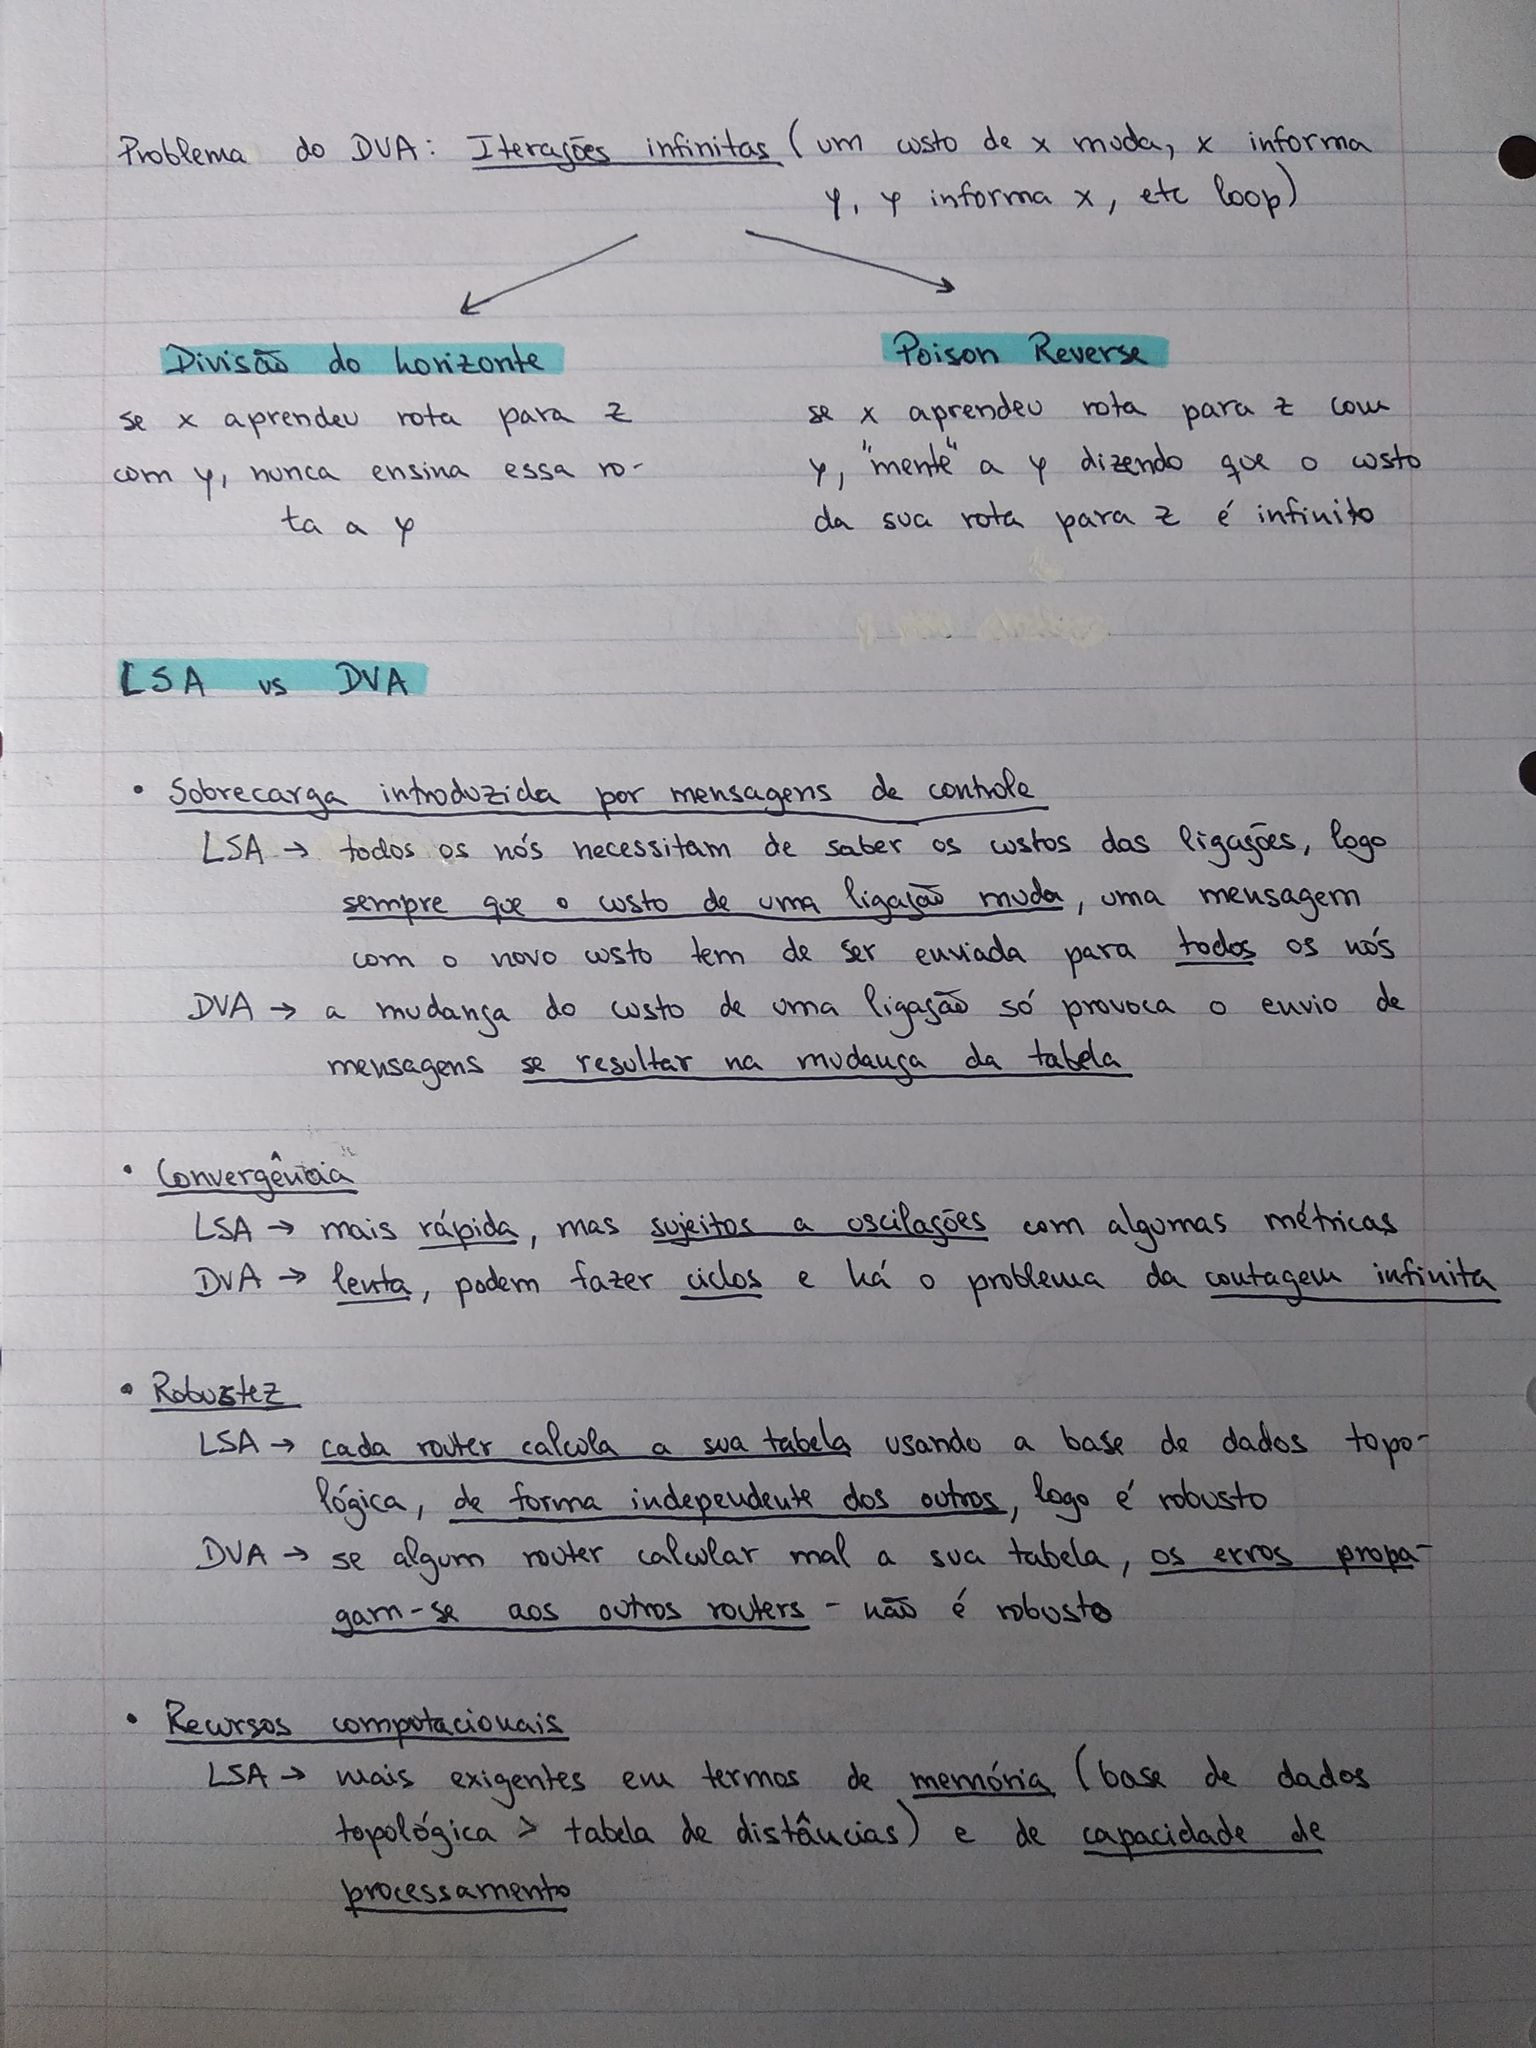 Problema do DVA: Iterações infinitas (um custo de x muda, x informa
y, y informa x, etc loop)
Divisão do horizonte
se x aprendeu rota para z
com y, nunca ensina essa ro-
ta a y
Poison Reverse
se x aprendeu rota para z com
y, "mente" a y dizendo que o custo
da sua rota para z é infinito
LSA vs DVA
• Sobrecarga introduzida por mensagens de controle
LSA → todos os nós necessitam de saber os custos das ligações, logo
sempre que o custo de uma ligação muda, uma mensagem
com o novo custo tem de ser enviada para todos os nós
DVA → a mudança do custo de uma ligação só provoca o envio de
mensagens se resultar na mudança da tabela
• Convergência
LSA → mais rápida, mas sujeitos a oscilações com algumas métricas
DVA → lenta, podem fazer ciclos e há o problema da contagem infinita
• Robustez
LSA → cada router calcula a sua tabela usando a base de dados topo-
lógica, de forma independente dos outros, logo é robusto
DVA → se algum router calcular mal a sua tabela, os erros propa-
gam-se aos outros routers - não é robusto
• Recursos computacionais
LSA → mais exigentes em termos de memória (base de dados
topológica > tabela de distâncias) e de capacidade de
processamento